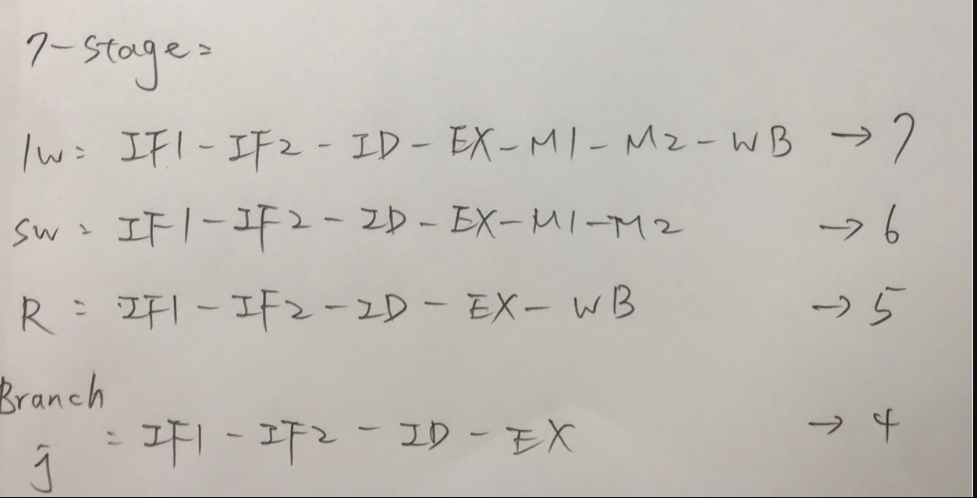 7-stage:
lw: IF1-IF2-ID-EX-M1-M2-WB → 7
sw: IF1-IF2-ID-EX-M1-M2 → 6
R: IF1-IF2-ID-EX-WB → 5
Branch
j : IF1-IF2-ID-EX → 4